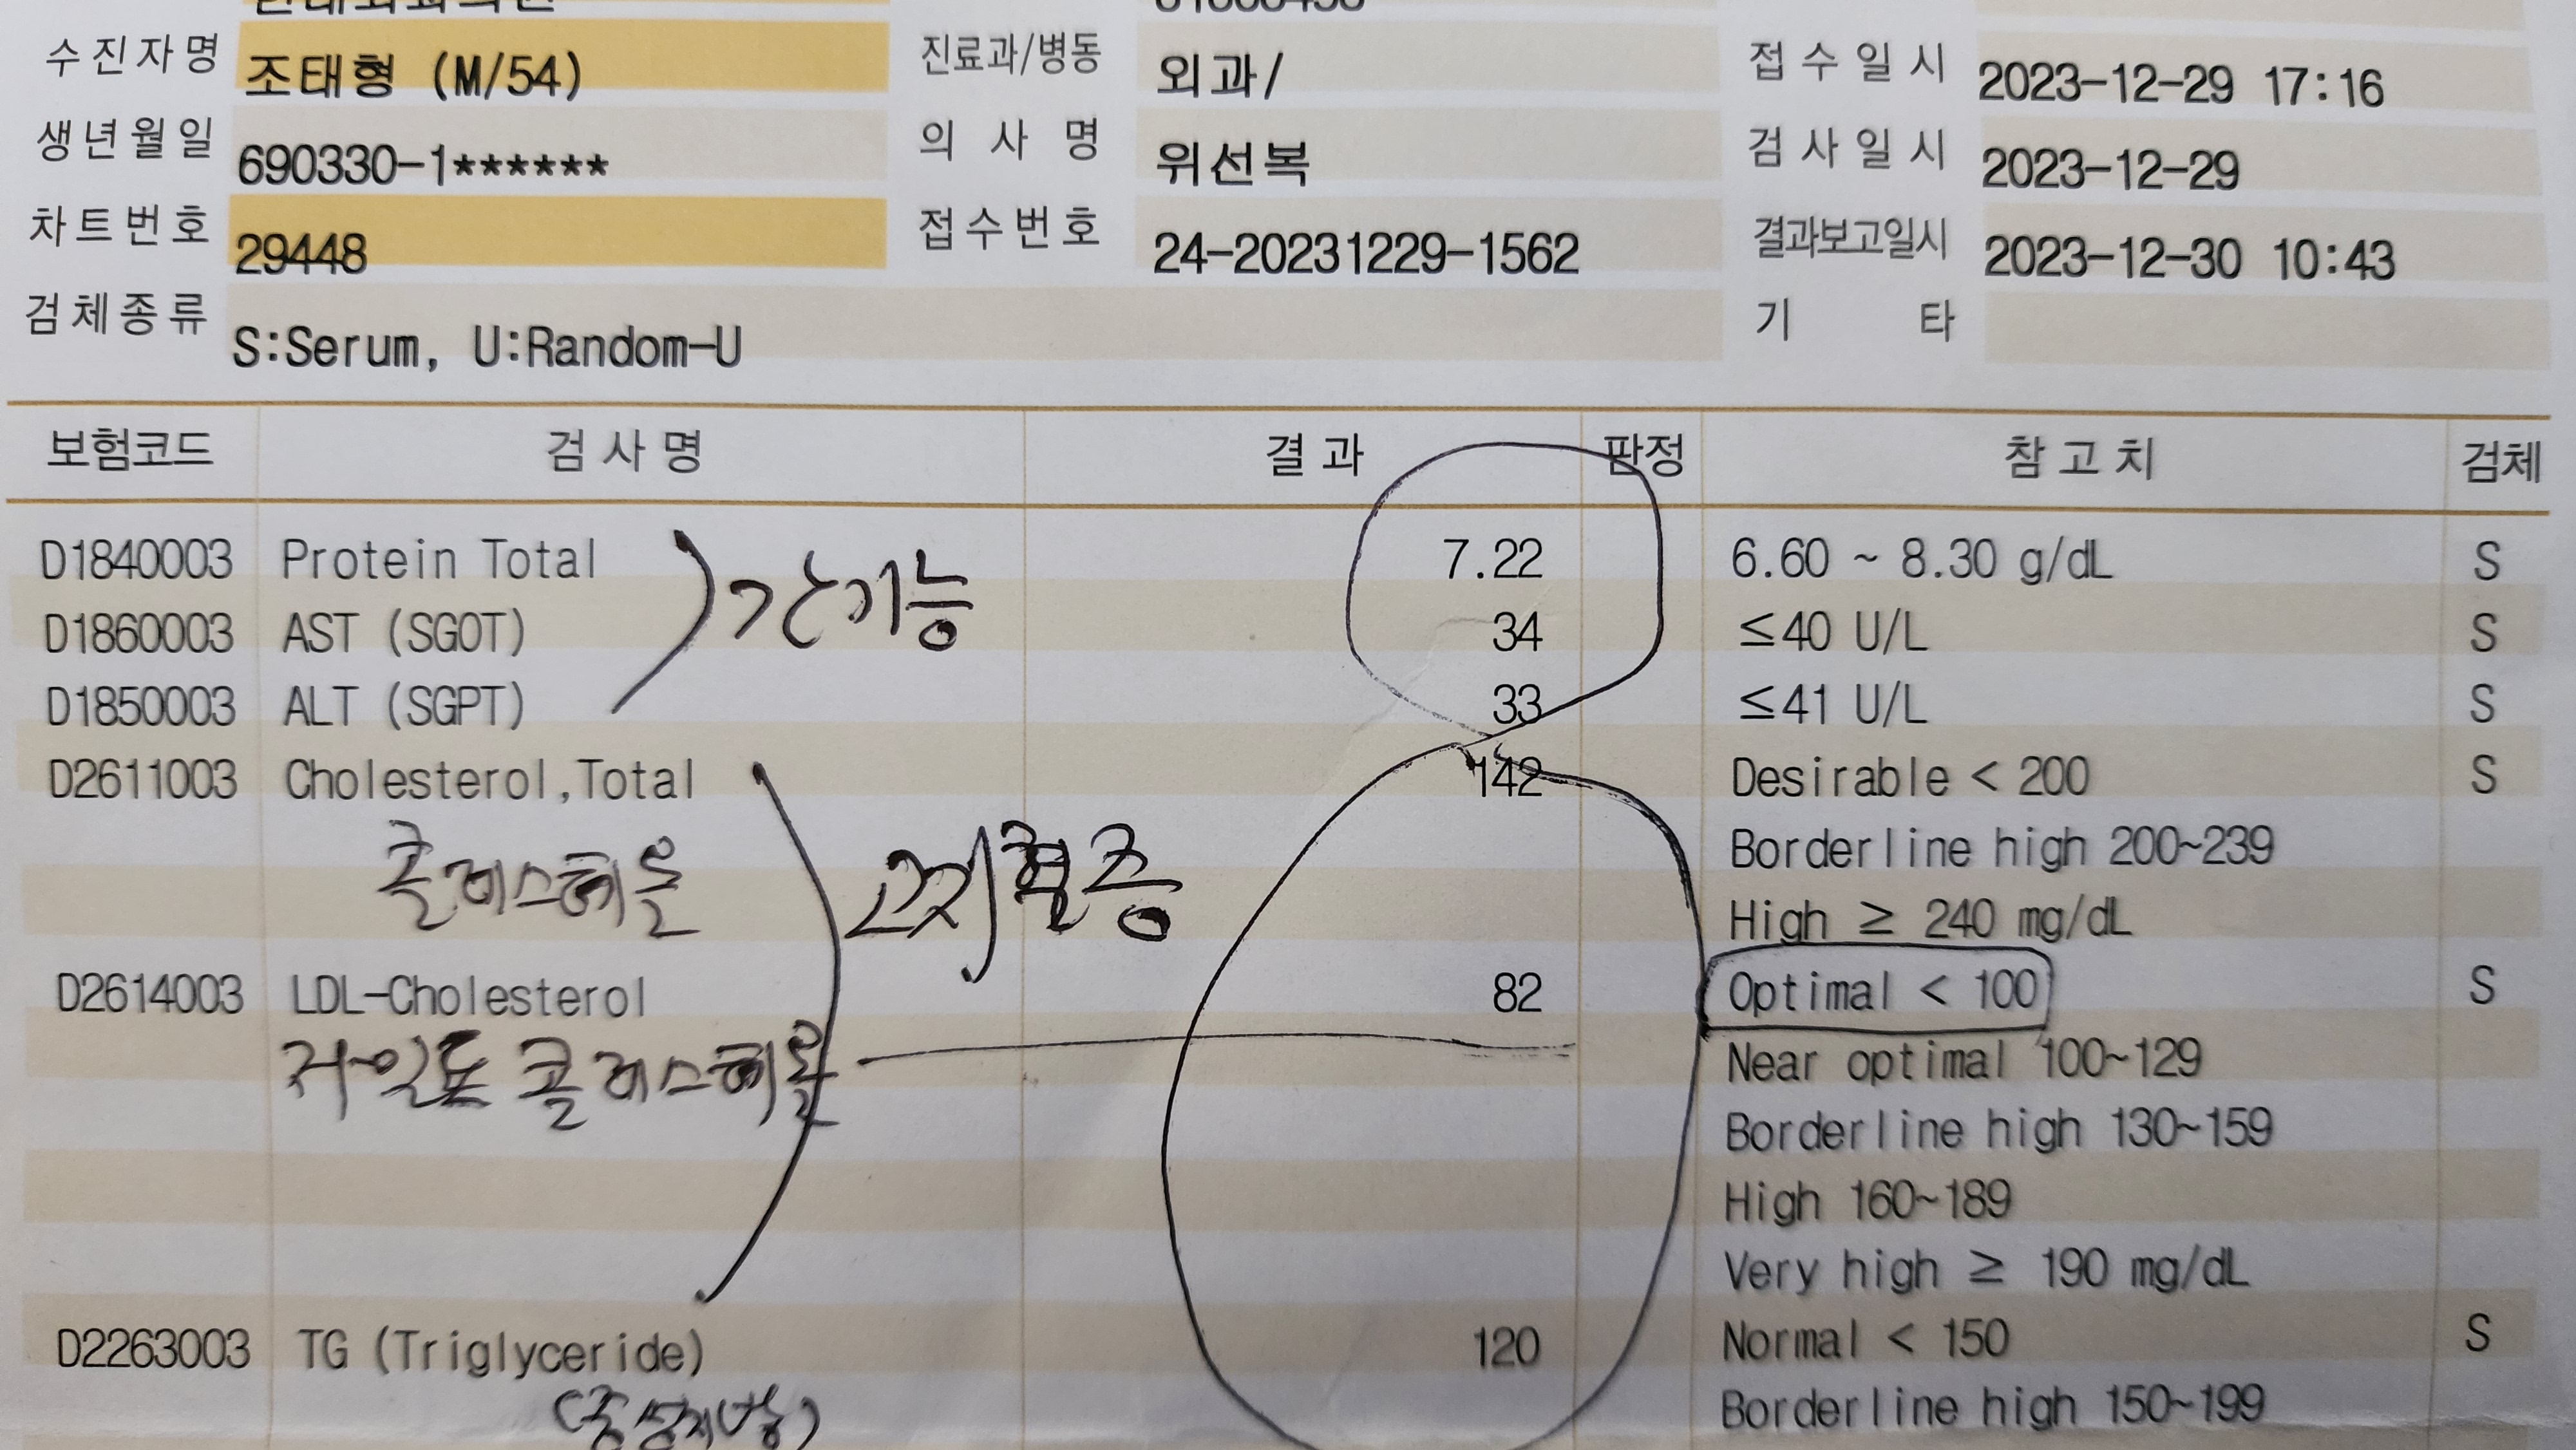 수진자명 조태형 (M/54) 진료과/병동 외과/ 접수일시 2023-12-29 17:16
생년월일 690330-1****** 의사명 위선복 검사일시 2023-12-29
차트번호 29448 접수번호 24-20231229-1562 결과보고일시 2023-12-30 10:43
검체종류 S:Serum, U:Random-U 기타
보험코드 검사명 결과 판정 참고치 검체
D1840003 Protein Total 7.22 6.60 ~ 8.30 g/dL S
간기능
D1860003 AST (SGOT) 34 ≤40 U/L S
D1850003 ALT (SGPT) 33 ≤41 U/L S
D2611003 Cholesterol,Total 142 Desirable < 200 S
Borderline high 200~239
콜레스테롤 고지혈증
High ≥ 240 mg/dL
D2614003 LDL-Cholesterol 82 Optimal < 100 S
저밀도 콜레스테롤 Near optimal 100~129
Borderline high 130~159
High 160~189
Very high ≥ 190 mg/dL
D2263003 TG (Triglyceride) 120 Normal < 150 S
(중성지방) Borderline high 150~199